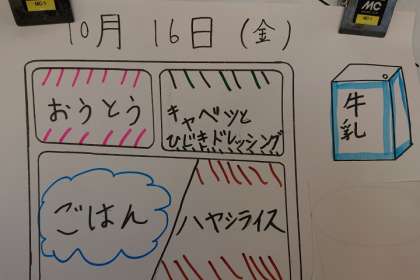 10月 16日 (金)
おうとう
キャベツと
ひじきドレッシング
牛乳
ごはん
ハヤシライス
MC